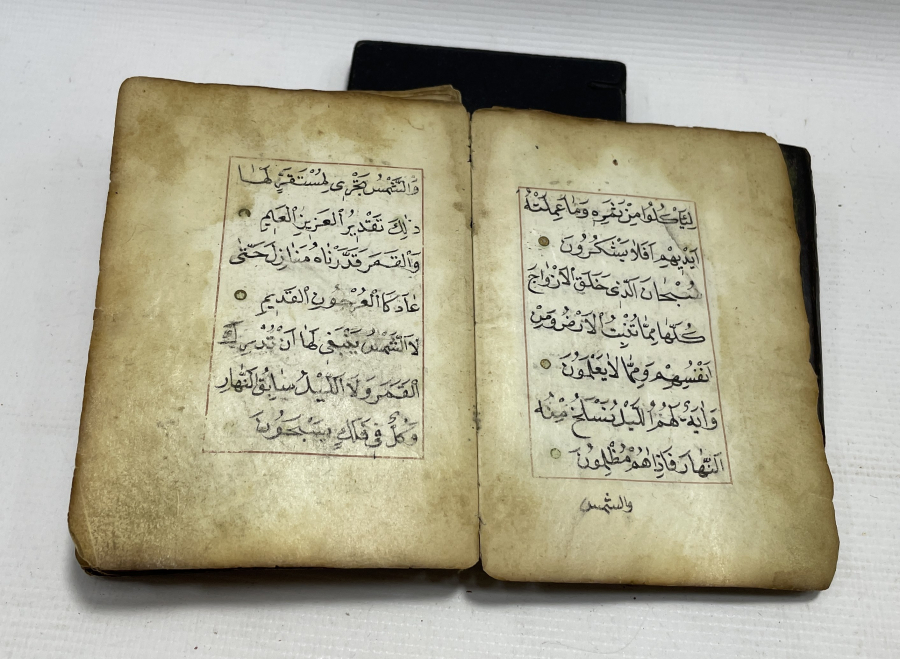 لِيَأْكُلُوا مِنْ ثَمَرِهِ وَمَا عَمِلَتْهُ
اَيْدِيهِمْ اَفَلَا يَشْكُرُونَ
سُبْحَانَ الَّذِى خَلَقَ الْاَزْوَاجَ
كُلَّهَا مِمَّا تُنْبِتُ الْاَرْضُ وَمِنْ
اَنْفُسِهِمْ وَمِمَّا لَا يَعْلَمُونَ
وَاٰيَةٌ لَهُمُ الَّيْلُ نَسْلَخُ مِنْهُ
النَّهَارَ فَاِذَا هُمْ مُظْلِمُونَ
والشمس
وَالشَّمْسُ تَجْرِى لِمُسْتَقَرٍّ لَهَا
ذٰلِكَ تَقْدِيرُ الْعَزِيزِ الْعَلِيمِ
وَالْقَمَرَ قَدَّرْنَاهُ مَنَازِلَ حَتّٰى
عَادَ كَالْعُرْجُونِ الْقَدِيمِ
لَا الشَّمْسُ يَنْبَغِى لَهَا اَنْ تُدْرِكَ
الْقَمَرَ وَلَا الَّيْلُ سَابِقُ النَّهَارِ
وَكُلٌّ فِى فَلَكٍ يَسْبَحُونَ